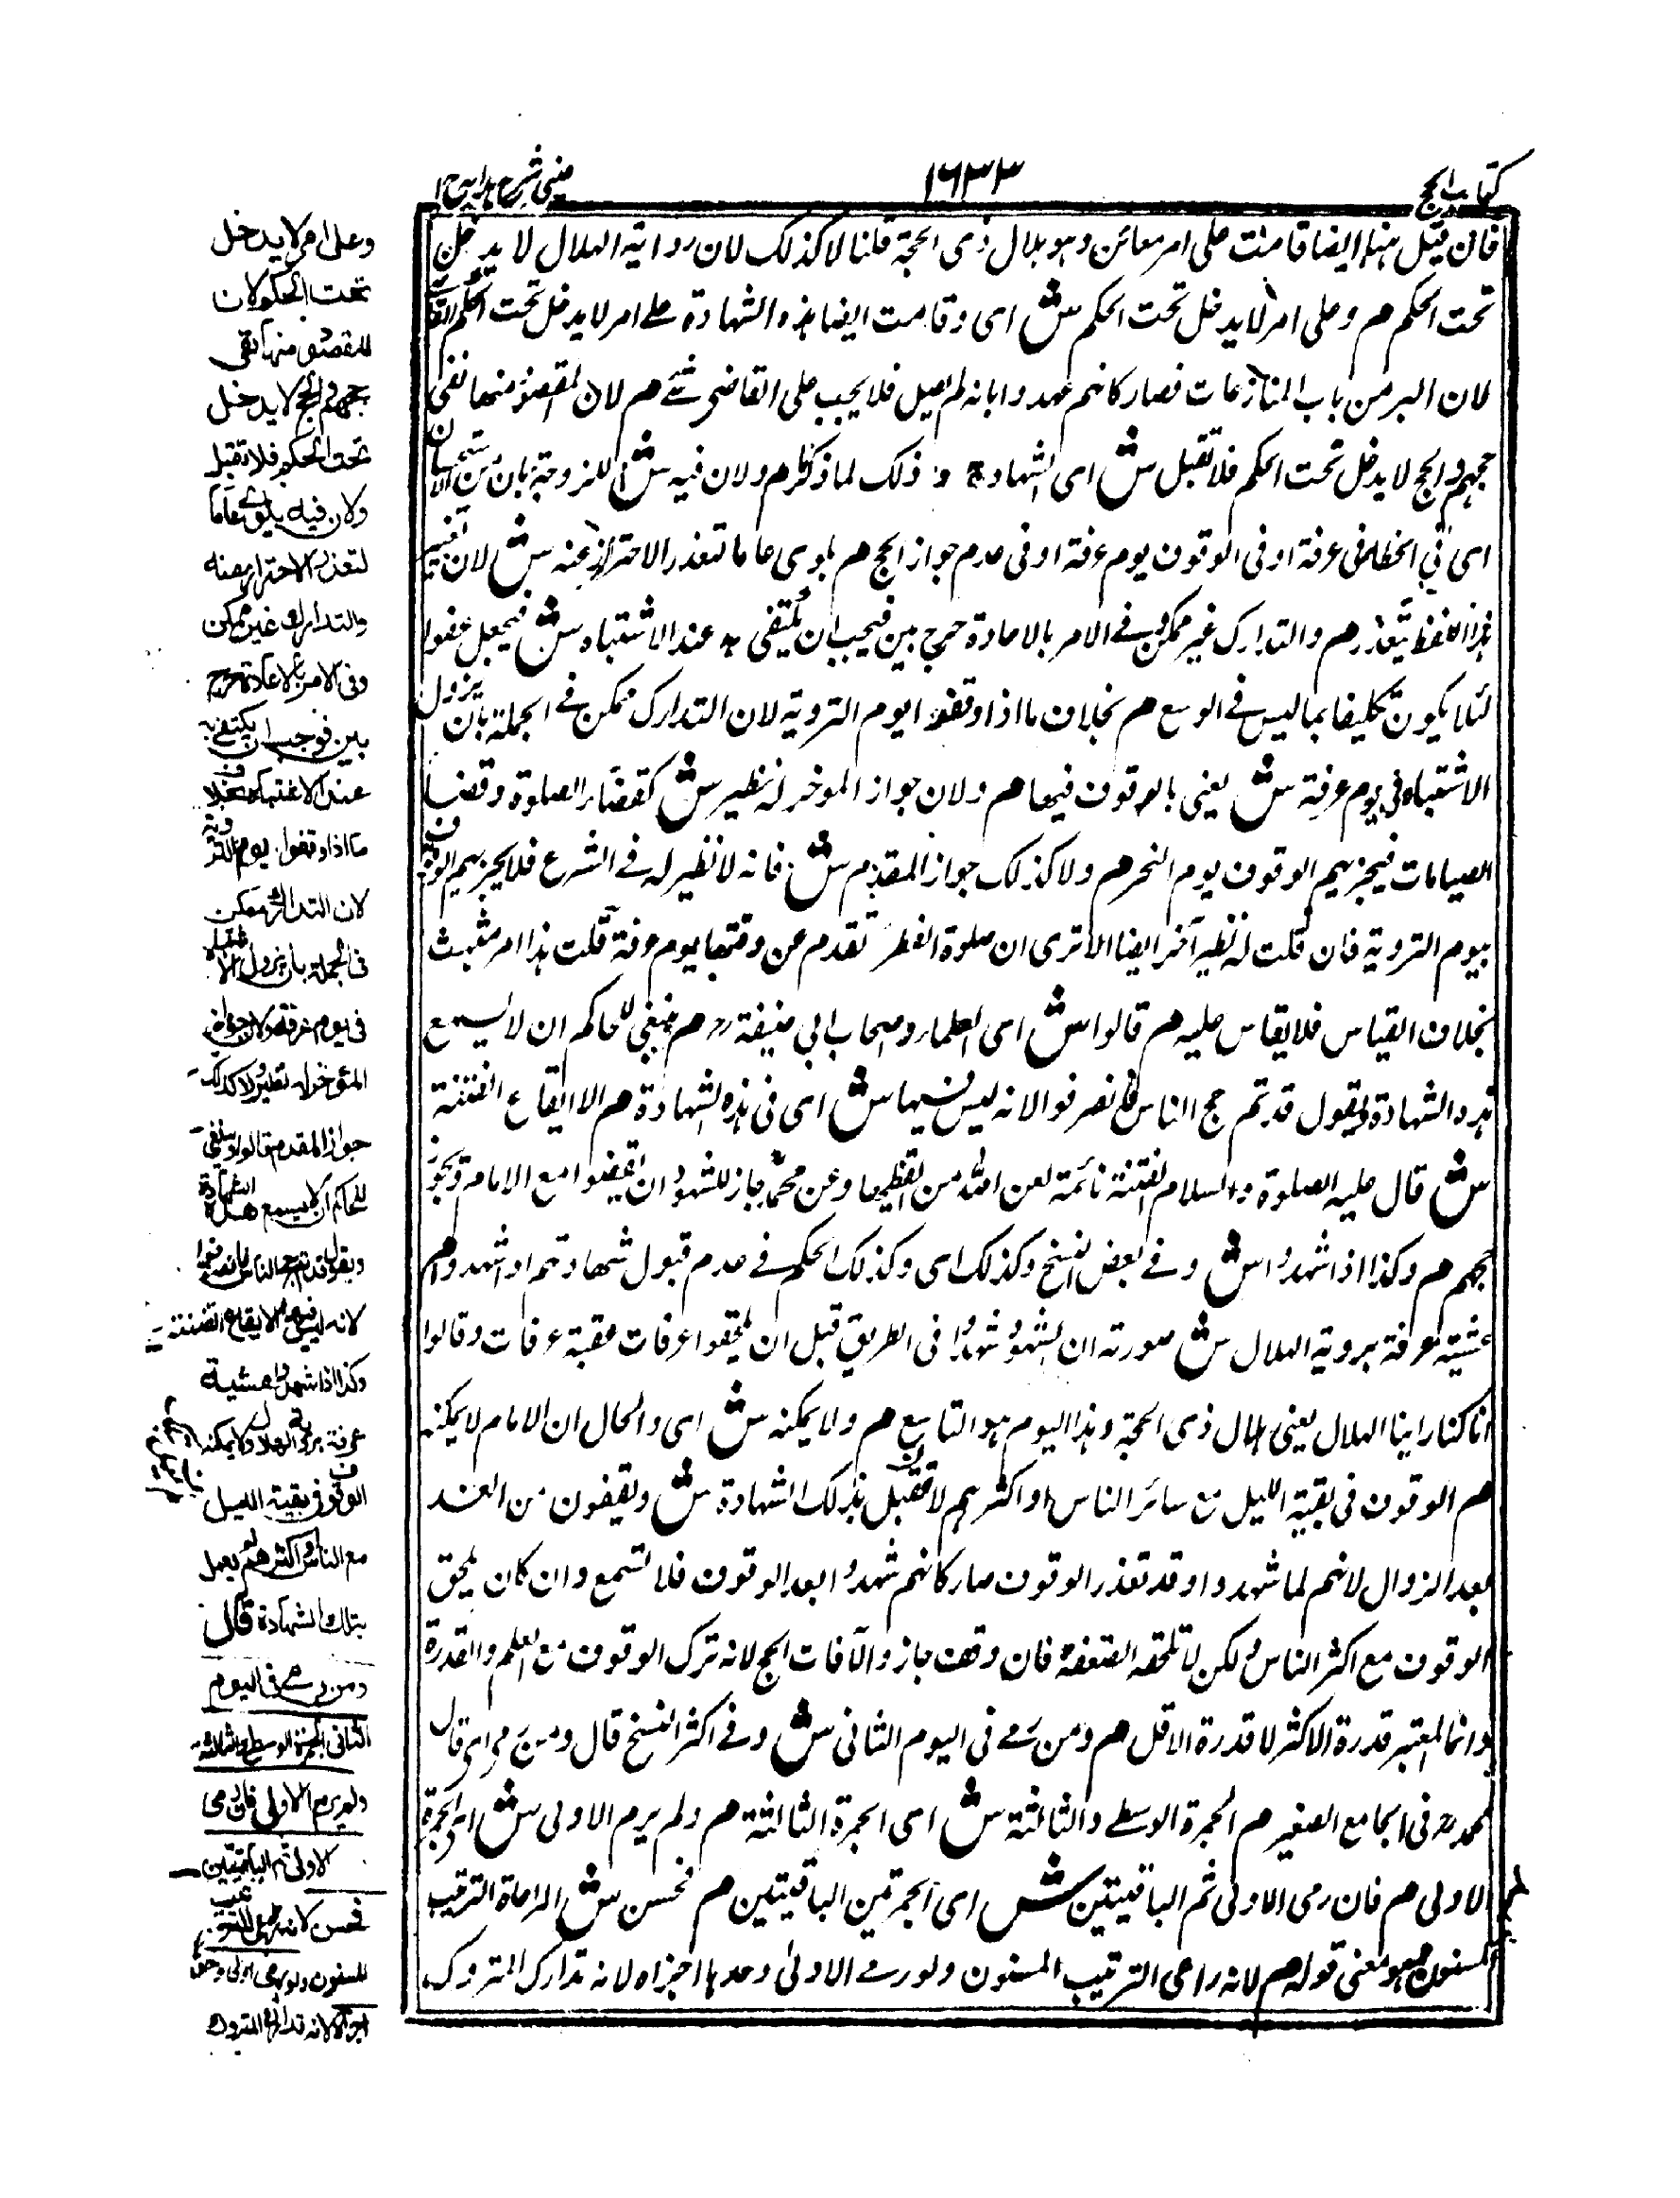 كتاب الحج
١٦٣٣
عيني شرح هدايه ج ١
فان قيل هنا ايضا قامت على امر معائن وهو هلال ذى الحجة قلنا لا كذلك لان رواية الهلال لا يدخل
تحت الحكم هم وعلى امر لا يدخل تحت الحكم ش اى وقامت ايضا هذه الشهادة على امر لا يدخل تحت الحكم
لان البر من باب المنازعات فصار كانهم شهدوا بانه لم يصل فلا يجب على القاضى شئ هم لان المقصود منها نفى
حجهم والحج لا يدخل تحت الحكم فلا تقبل ش اى الشهادة وذلك لما ذكر هم ولان فيه ش
اى في الخطا فى عرفة او فى الوقوف يوم عرفة او فى عدم جواز الحج هم بلوى عاما لتعذر الاحتراز عنه ش لان
هذا اللفظ يتعذر هم والتدارك غير ممكن وفى الامر بالاعادة حرج بين فيجب ان يكتفى به عند الاشتباه ش فيجعل عفوا
لئلا يكون تكليفا بما ليس فى الوسع هم بخلاف ما اذا وقفوا يوم التروية لان التدارك ممكن فى الجملة بان يزول
الاشتباه فى يوم عرفة ش يعنى بالوقوف فيها هم ولان جواز الموخر له نظير ش كقضاء الصلوة وقضا
الصيامات فيجزيهم الوقوف يوم النحر هم ولا كذلك جواز المقدم ش فانه لا نظير له فى الشرع فلا يجزيهم الوقوف
بيوم التروية فان قلت له نظير آخر ايضا الا ترى ان صلوة العصر تقدم عن وقتها يوم عرفة قلت هذا امر مثبت
بخلاف القياس فلا يقاس عليه هم قالوا ش اى العلماء وصحاب ابي حنيفة رح هم ينبغي للحاكم ان لا يسمع
هذه الشهادة ويقول قد تم حج الناس فانصرفوا لانه ليس فيها ش اى فى هذه الشهادة هم الا ايقاع الفتنة
ش قال عليه الصلوة والسلام الفتنة نائمة لعن الله من ايقظها وعن محمد جاز للشهود ان يقفوا مع الامام ويجوز
حجهم هم وكذا اذا شهدوا ش وفى بعض النسخ وكذلك اى وكذلك الحكم فى عدم قبول شهادتهم اذا شهدوا هم
عشية عرفة بروية الهلال ش صورته ان الشهود شهدوا فى الطريق قبل ان يلحقوا عرفات عشية عرفات وقالوا
انا كنا راينا الهلال يعنى هلال ذى الحجة وهذا اليوم هو التاسع هم ولا يمكنه ش اى والحال ان الامام لا يمكنه
هم الوقوف فى بقية الليل مع سائر الناس او اكثرهم لا تقبل بذلك الشهادة ش ويقفون من الغد
بعد الزوال لانهم لما شهدوا وقد تعذر الوقوف صار كانهم شهدوا بعد الوقوف فلا تسمع وان كان يلحق
الوقوف مع اكثر الناس ولكن لا تلحقه الضعفة فان وقف جاز والا فات الحج لانه ترك الوقوف مع العلم والقدرة
وانما المعتبر قدرة الاكثر لا قدرة الاقل هم ومن رمى فى اليوم الثانى ش وفى اكثر النسخ قال ومن رمى اى قال
محمد رح فى الجامع الصغير هم الجمرة الوسطى والثالثة ش اى الجمرة الثالثة هم ولم يرم الاولى ش اى الجمرة
الاولى هم فان رمى الاولى ثم الباقيتين ش اى الجمرتين الباقيتين هم فحسن ش المراعاة الترتيب
المسنون وهو معنى قوله هم لانه راعى الترتيب المسنون ولو رمى الاولى وحدها اجزاه لانه تدارك المتروك
وعلى امر لا يدخل
تحت الحكم لان
المقصود منها نفى
حجهم والحج لا يدخل
تحت الحكم فلا تقبل
ولان فيه بلوى عاما
لتعذر الاحتراز عنه
والتدارك غير ممكن
وفى الامر بالاعادة حرج
بين فوجب ان يكتفى به
عند الاشتباه بخلاف
ما اذا وقفوا يوم التروية
لان التدارك ممكن
فى الجملة بان يزول الاشتباه
فى يوم عرفة ولان جواز
المؤخر له نظير ولا كذلك
جواز المقدم قالوا ينبغي
للحاكم ان لا يسمع هذه الشهادة
ويقول قد تم حج الناس فانصرفوا
لانه ليس فيها الا ايقاع الفتنة
وكذا اذا شهدوا عشية
عرفة بروية الهلال ولا يمكنه
الوقوف فى بقية الليل
مع الناس او اكثرهم لم يعمل
بتلك الشهادة قال
ومن رمى فى اليوم
الثانى الجمرة الوسطى والثالثة
ولم يرم الاولى فان رمى
الاولى ثم الباقيتين
فحسن لانه راعى الترتيب
المسنون ولو رمى الاولى وحدها
اجزاه لانه تدارك المتروك